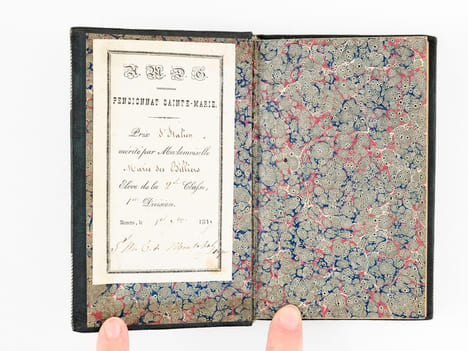 A. M. D. G.
PENSIONNAT SAINTE-MARIE.
Prix d'Italien
mérité par Mademoiselle
Marie des Billiers
Elève de la 2de Classe,
1re Division.
le 1er